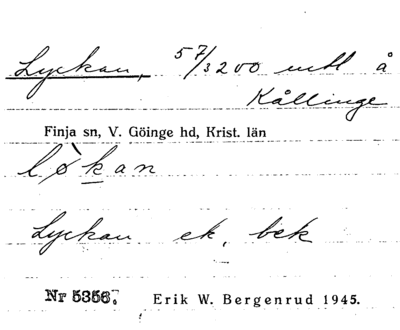 Lyckan, 57/3200 mtl å
Kållinge
Finja sn, V. Göinge hd, Krist. län
lø̀kan
Lyckan ek, bek
Nr 5356. Erik W. Bergenrud 1945.